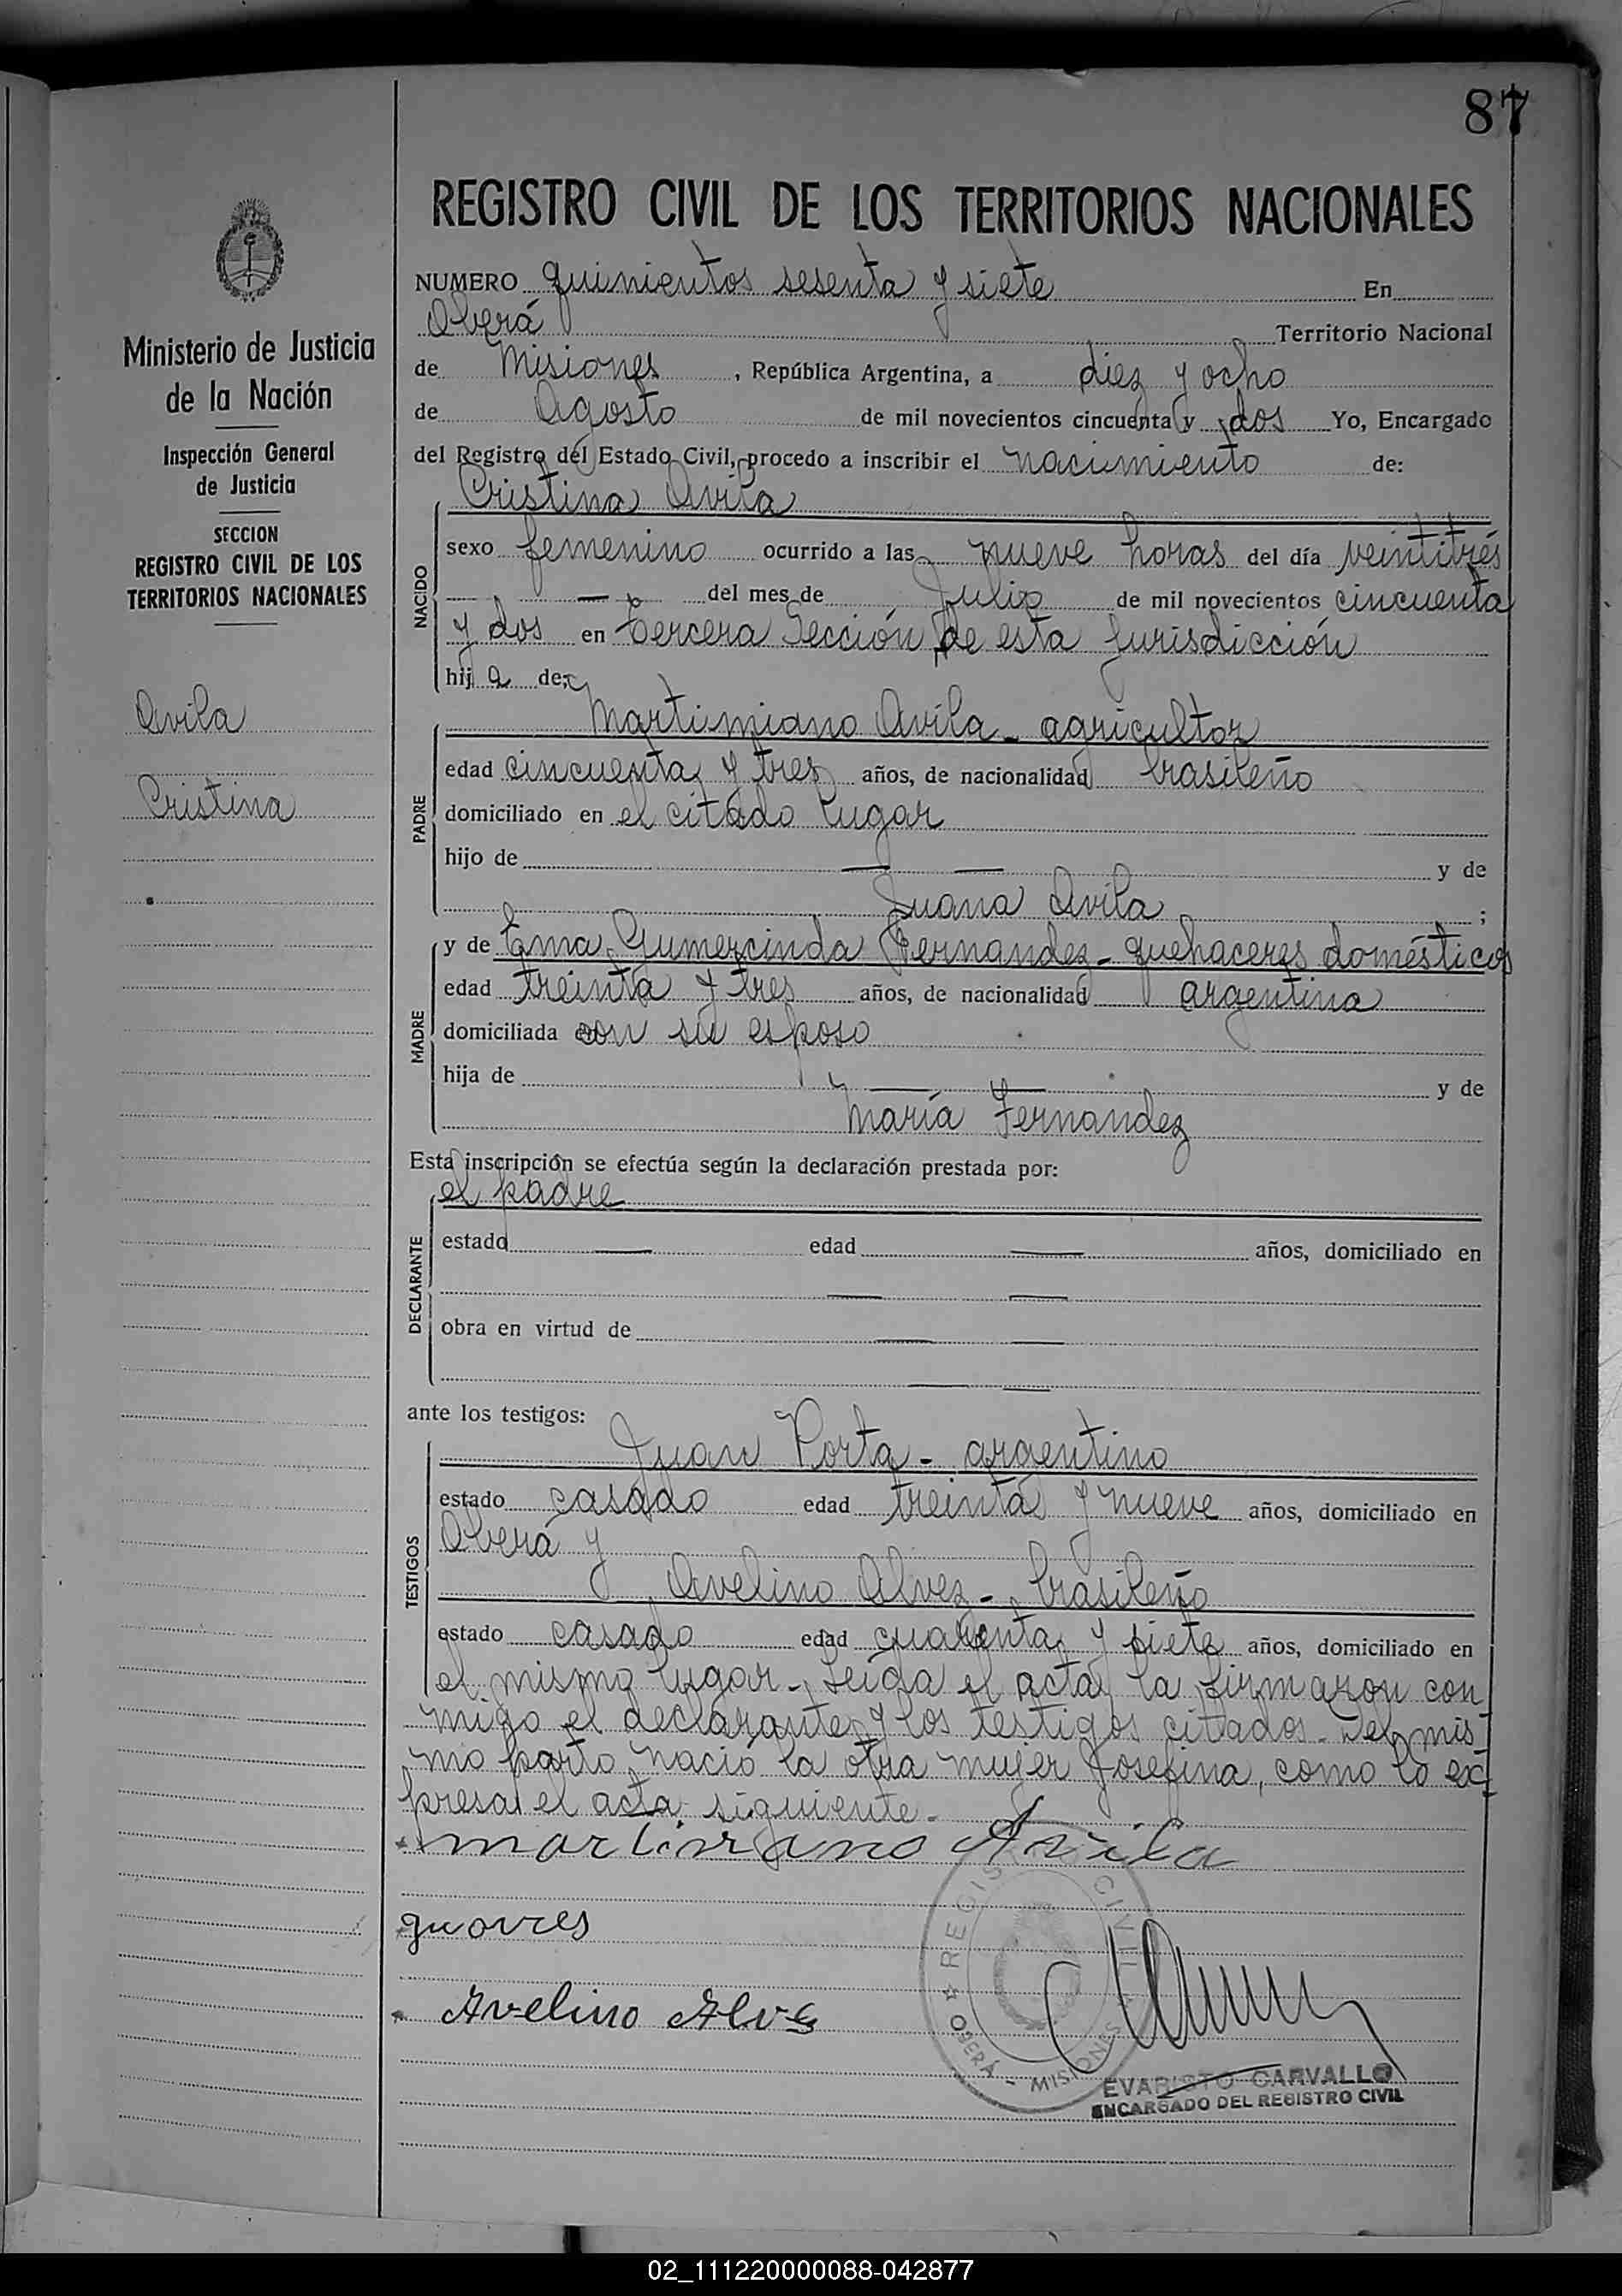 87
REGISTRO CIVIL DE LOS TERRITORIOS NACIONALES
Ministerio de Justicia
de la Nación
Inspección General
de Justicia
SECCION
REGISTRO CIVIL DE LOS
TERRITORIOS NACIONALES
Avila
Cristina
NUMERO quinientos sesenta y siete En
Oberá Territorio Nacional
de Misiones, República Argentina, a diez y ocho
de Agosto de mil novecientos cincuenta y dos Yo, Encargado
del Registro del Estado Civil, procedo a inscribir el nacimiento de:
Cristina Avila
NACIDO
sexo femenino ocurrido a las nueve horas del día veintitrés
— — del mes de Julio de mil novecientos cincuenta
y dos en tercera Sección de esta jurisdicción
hija de:
PADRE
Martimiano Avila - agricultor
edad cincuenta y tres años, de nacionalidad brasileño
domiciliado en el citado lugar
hijo de — — y de
Juana Avila ;
MADRE
y de Ema Gumercinda Fernandez - quehaceres domésticos
edad treinta y tres años, de nacionalidad argentina
domiciliada con su esposo
hija de — — y de
María Fernandez
Esta inscripción se efectúa según la declaración prestada por:
el padre
DECLARANTE
estado — edad — años, domiciliado en
— —
obra en virtud de — —
— —
ante los testigos:
TESTIGOS
Juan Porta - argentino
estado casado edad treinta y nueve años, domiciliado en
Oberá y
Avelino Alvez - brasileño
estado casado edad cuarenta y siete años, domiciliado en
el mismo lugar - Leída el acta, la firmaron con
migo el declarante y los testigos citados. Del mis-
mo parto nació la otra mujer Josefina, como lo ex-
presa el acta siguiente -
martimiano Avila
Avelino Alves
REGISTRO CIVIL
OBERÁ - MISIONES
EVARISTO CARVALLO
ENCARGADO DEL REGISTRO CIVIL
02_111220000088-042877